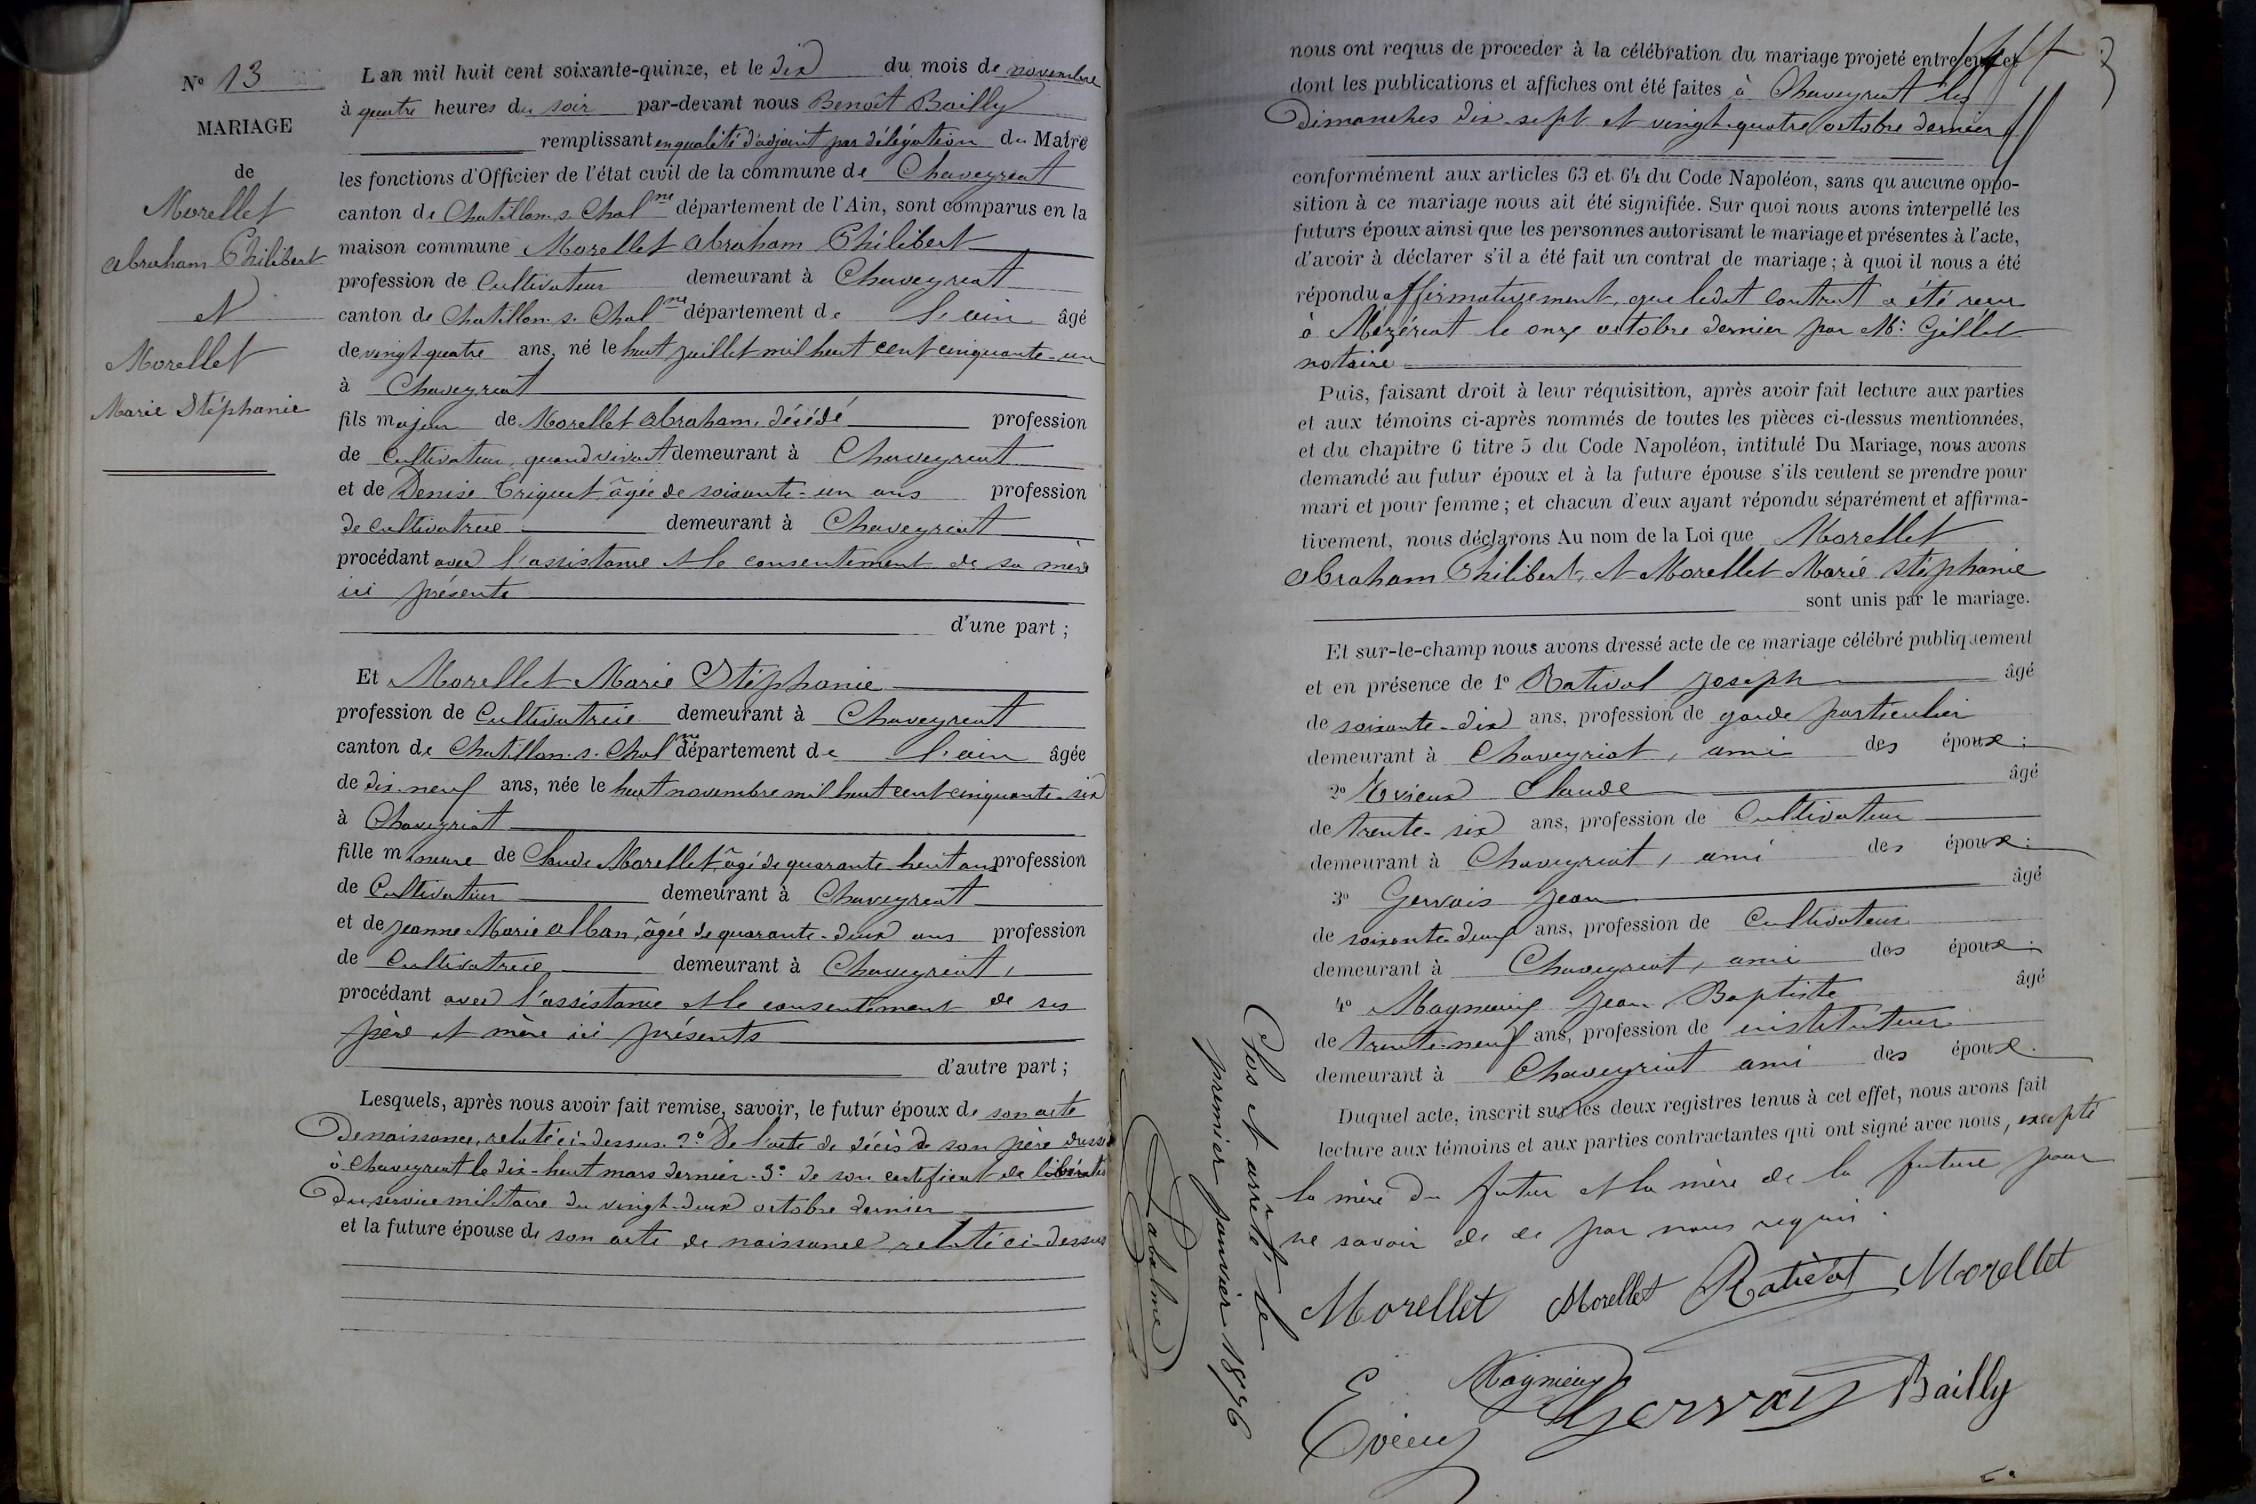 N° 13
MARIAGE
de
Morellet
Abraham Philibert
et
Morellet
Marie Stéphanie
L'an mil huit cent soixante-quinze, et le dix du mois de novembre
à quatre heures du soir par-devant nous Benoît Bailly
remplissant en qualité d'adjoint par délégation du Maire
les fonctions d'Officier de l'état civil de la commune de Chaveyriat
canton de Chatillon s. Chal^ne département de l'Ain, sont comparus en la
maison commune Morellet Abraham Philibert
profession de Cultivateur demeurant à Chaveyriat
canton de Chatillon s. Chal^ne département de l'ain âgé
de vingt quatre ans, né le huit juillet mil huit cent cinquante-un
à Chaveyriat
fils majeur de Morellet Abraham, décédé profession
de Cultivateur, quand vivait demeurant à Chaveyriat
et de Denise Triquet âgée de soixante-un ans profession
de cultivatrice demeurant à Chaveyriat
procédant avec l'assistance et le consentement de sa mère
ici présente
d'une part ;
Et Morellet Marie Stéphanie
profession de Cultivatrice demeurant à Chaveyriat
canton de Chatillon s. Chal^ne département de l'ain âgée
de dix-neuf ans, née le huit novembre mil huit cent cinquante-six
à Chaveyriat
fille mineure de Claude Morellet âgé de quarante-huit ans profession
de Cultivateur demeurant à Chaveyriat
et de Jeanne Marie Alban, âgée de quarante-deux ans profession
de Cultivatrice demeurant à Chaveyriat,
procédant avec l'assistance et le consentement de ses
père et mère ici présents
d'autre part ;
Lesquels, après nous avoir fait remise, savoir, le futur époux de son acte
de naissance, relaté ci-dessus. 2° De l'acte de décès de son père dressé
à Chaveyriat le dix-huit mars dernier. 3° de son certificat de libération
du service militaire du vingt-deux octobre dernier
et la future épouse de son acte de naissance relaté ci-dessus
nous ont requis de procéder à la célébration du mariage projeté entre eux et
dont les publications et affiches ont été faites à Chaveyriat les
Dimanches dix-sept et vingt-quatre octobre dernier
conformément aux articles 63 et 64 du Code Napoléon, sans qu'aucune oppo-
sition à ce mariage nous ait été signifiée. Sur quoi nous avons interpellé les
futurs époux ainsi que les personnes autorisant le mariage et présentes à l'acte,
d'avoir à déclarer s'il a été fait un contrat de mariage ; à quoi il nous a été
répondu affirmativement, que ledit contrat a été reçu
à Mézériat le onze octobre dernier par M^e Gillet
notaire
Puis, faisant droit à leur réquisition, après avoir fait lecture aux parties
et aux témoins ci-après nommés de toutes les pièces ci-dessus mentionnées,
et du chapitre 6 titre 5 du Code Napoléon, intitulé Du Mariage, nous avons
demandé au futur époux et à la future épouse s'ils veulent se prendre pour
mari et pour femme ; et chacun d'eux ayant répondu séparément et affirma-
tivement, nous déclarons Au nom de la Loi que Morellet
Abraham Philibert, et Morellet Marie Stéphanie
sont unis par le mariage.
Et sur-le-champ nous avons dressé acte de ce mariage célébré publiquement
et en présence de 1° Rativat Joseph âgé
de soixante-dix ans, profession de garde particulier
demeurant à Chaveyriat, ami des époux.
2° Evieux Claude âgé
de trente-six ans, profession de Cultivateur
demeurant à Chaveyriat, ami des époux.
3° Gervais Jean âgé
de ans, profession de Cultivateur
demeurant à Chaveyriat, ami des époux.
4° Magnieux Jean Baptiste âgé
de trente-neuf ans, profession de instituteur
demeurant à Chaveyriat ami des époux.
Duquel acte, inscrit sur les deux registres tenus à cet effet, nous avons fait
lecture aux témoins et aux parties contractantes qui ont signé avec nous, excepté
la mère du futur et la mère de la future pour
ne savoir de ce par nous requis.
Morellet Morellet Rativat Morellet
Magnieux
Evieux Gervais Bailly
Clos et arrêté le
premier janvier 1876
Labalme